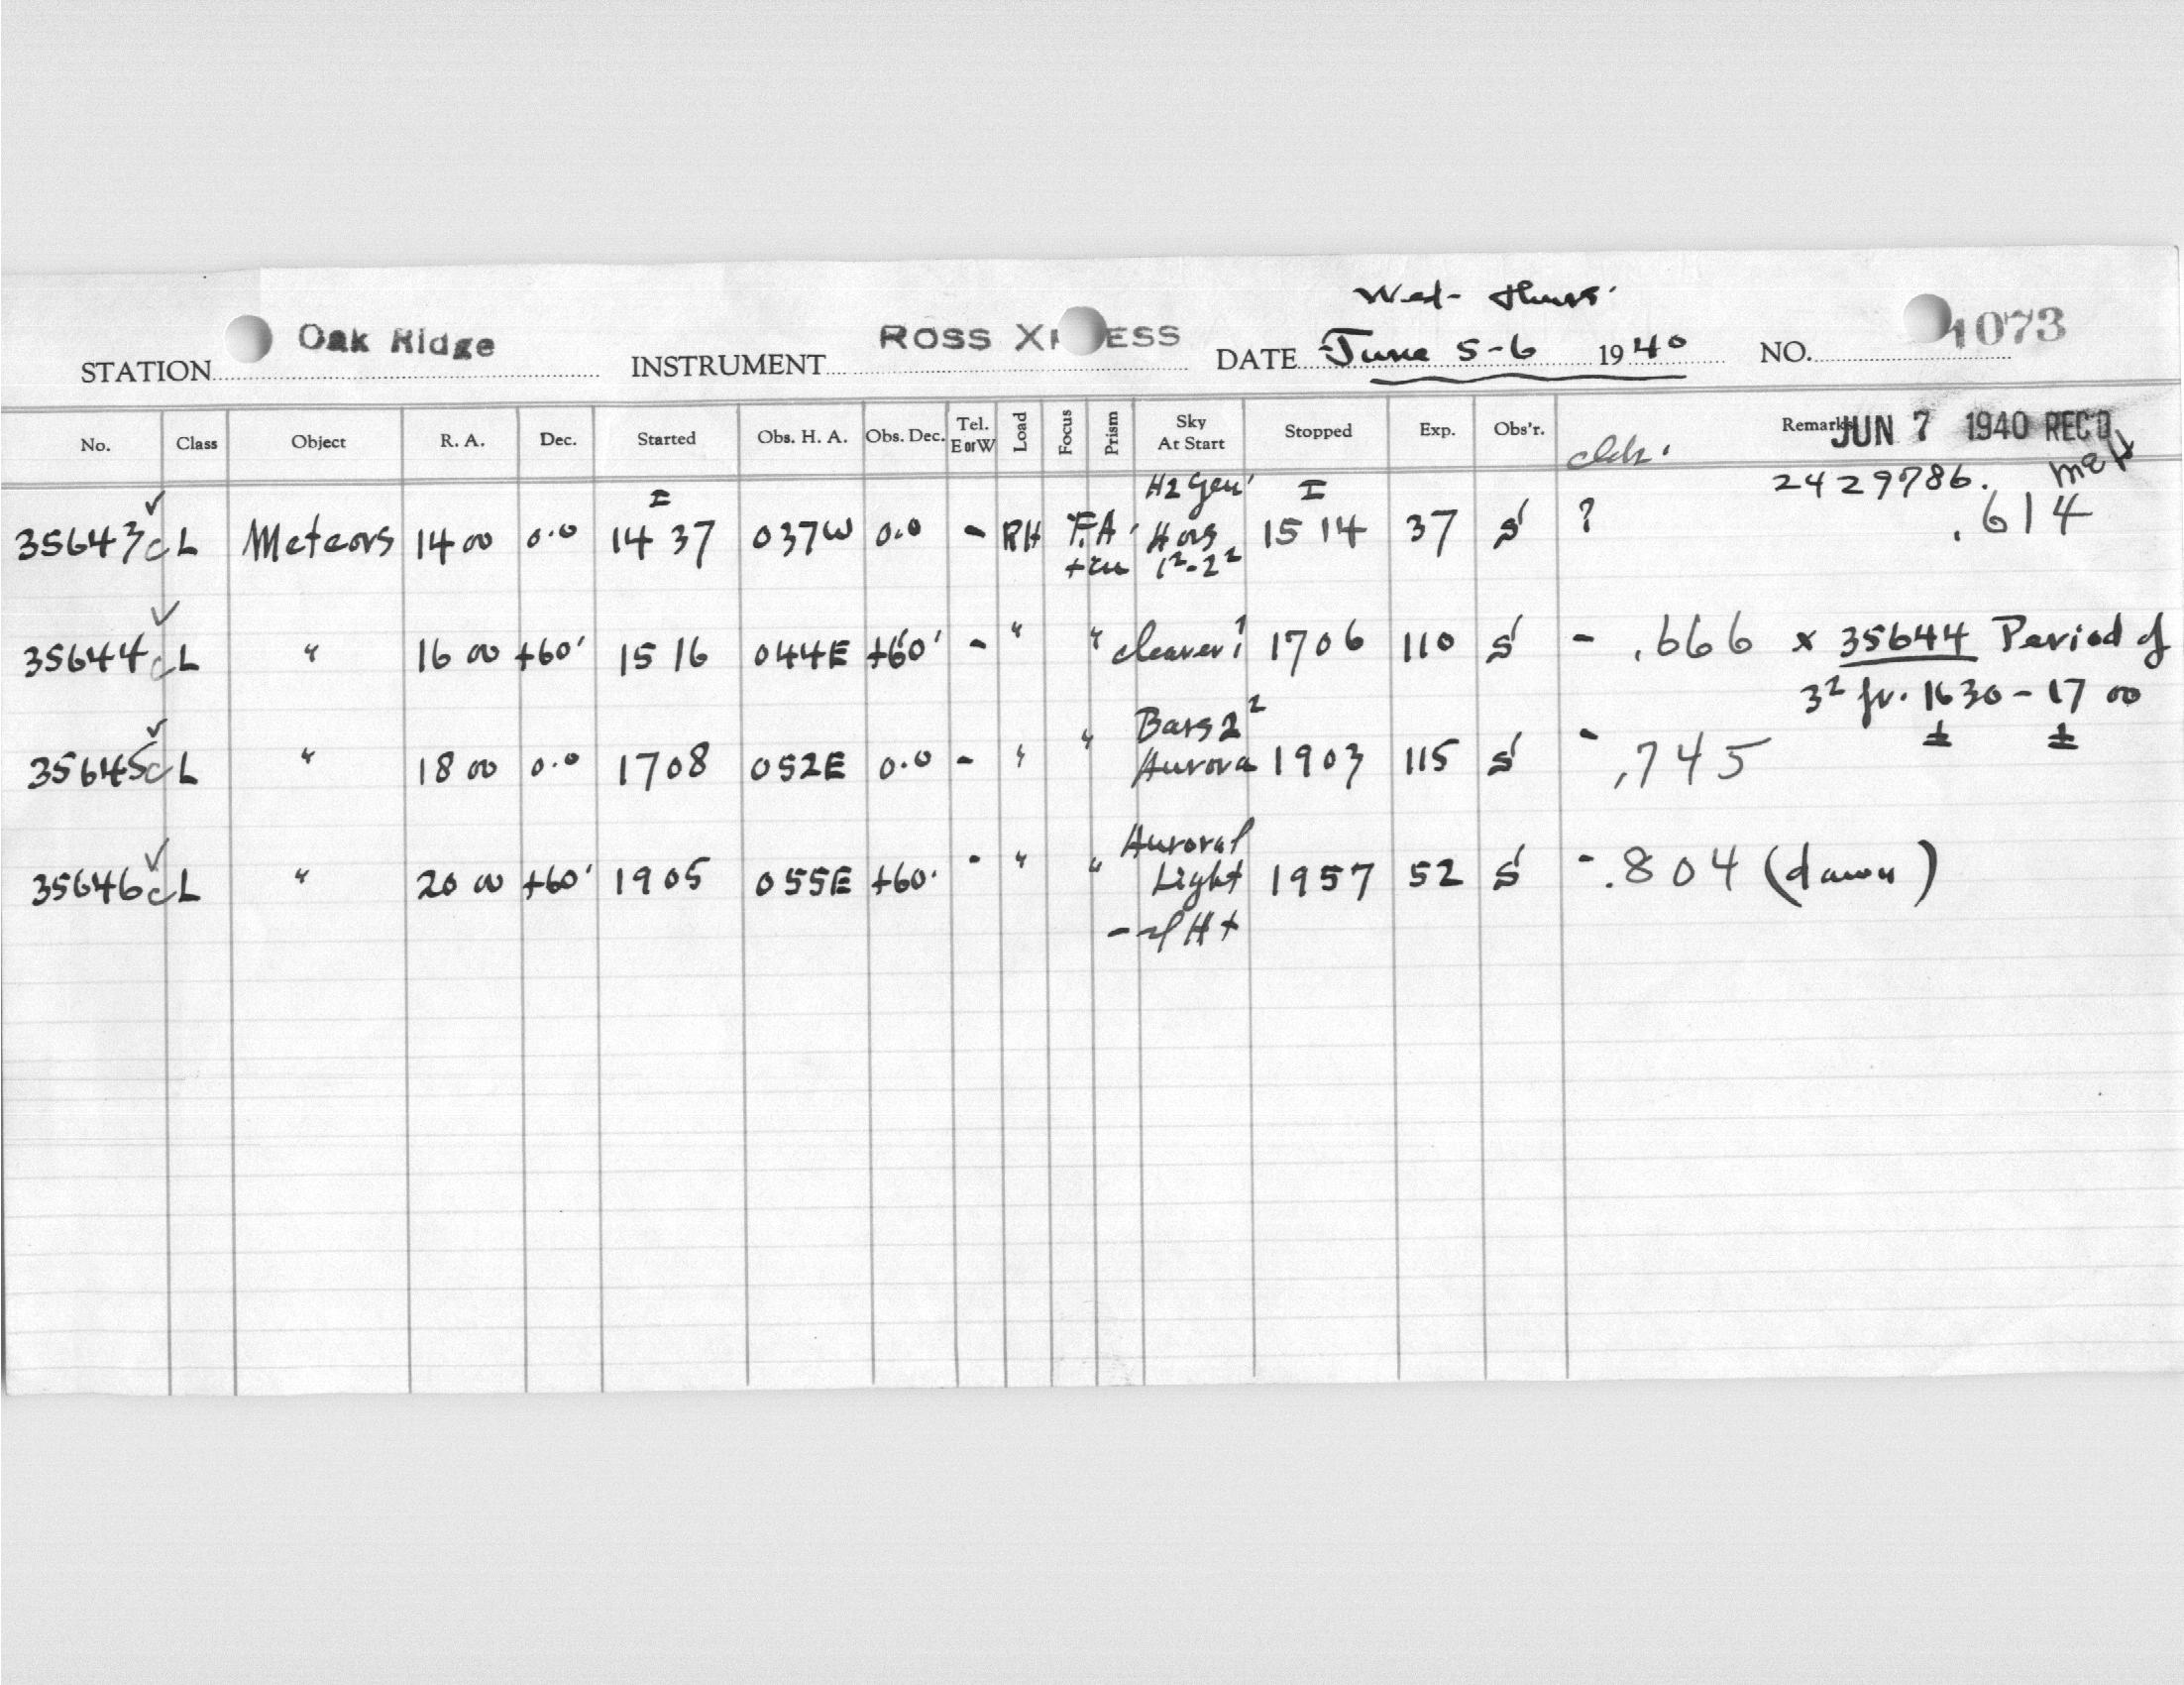 Wed- Thurs.
STATION Oak Ridge INSTRUMENT ROSS X ESS DATE June 5-6 1940 NO. 1073
No. Class Object R. A. Dec. Started Obs. H. A. Obs. Dec. Tel. E or W Load Focus Prism Sky At Start Stopped Exp. Obs'r. Remarks JUN 7 1940 REC'D
2429786.
35643c ✓ L Meteors 14 00 0.0 14 37 037W 0.0 - RH F.A. H2 Gen' 1²-2² 15 14 37 S ? .614
35644c ✓ L " 16 00 +60' 15 16 044E +60' - " " clearer? 1706 110 S - .666 x 35644 Period of
3² fr. 1630 - 17 00
± ±
35645c ✓ L " 18 00 0.0 1708 052E 0.0 - " " Bars 2² Aurora 1903 115 S - .745
35646c ✓ L " 20 00 +60' 1905 055E +60. - " " Auroral Light 1957 52 S - .804 (dawn)